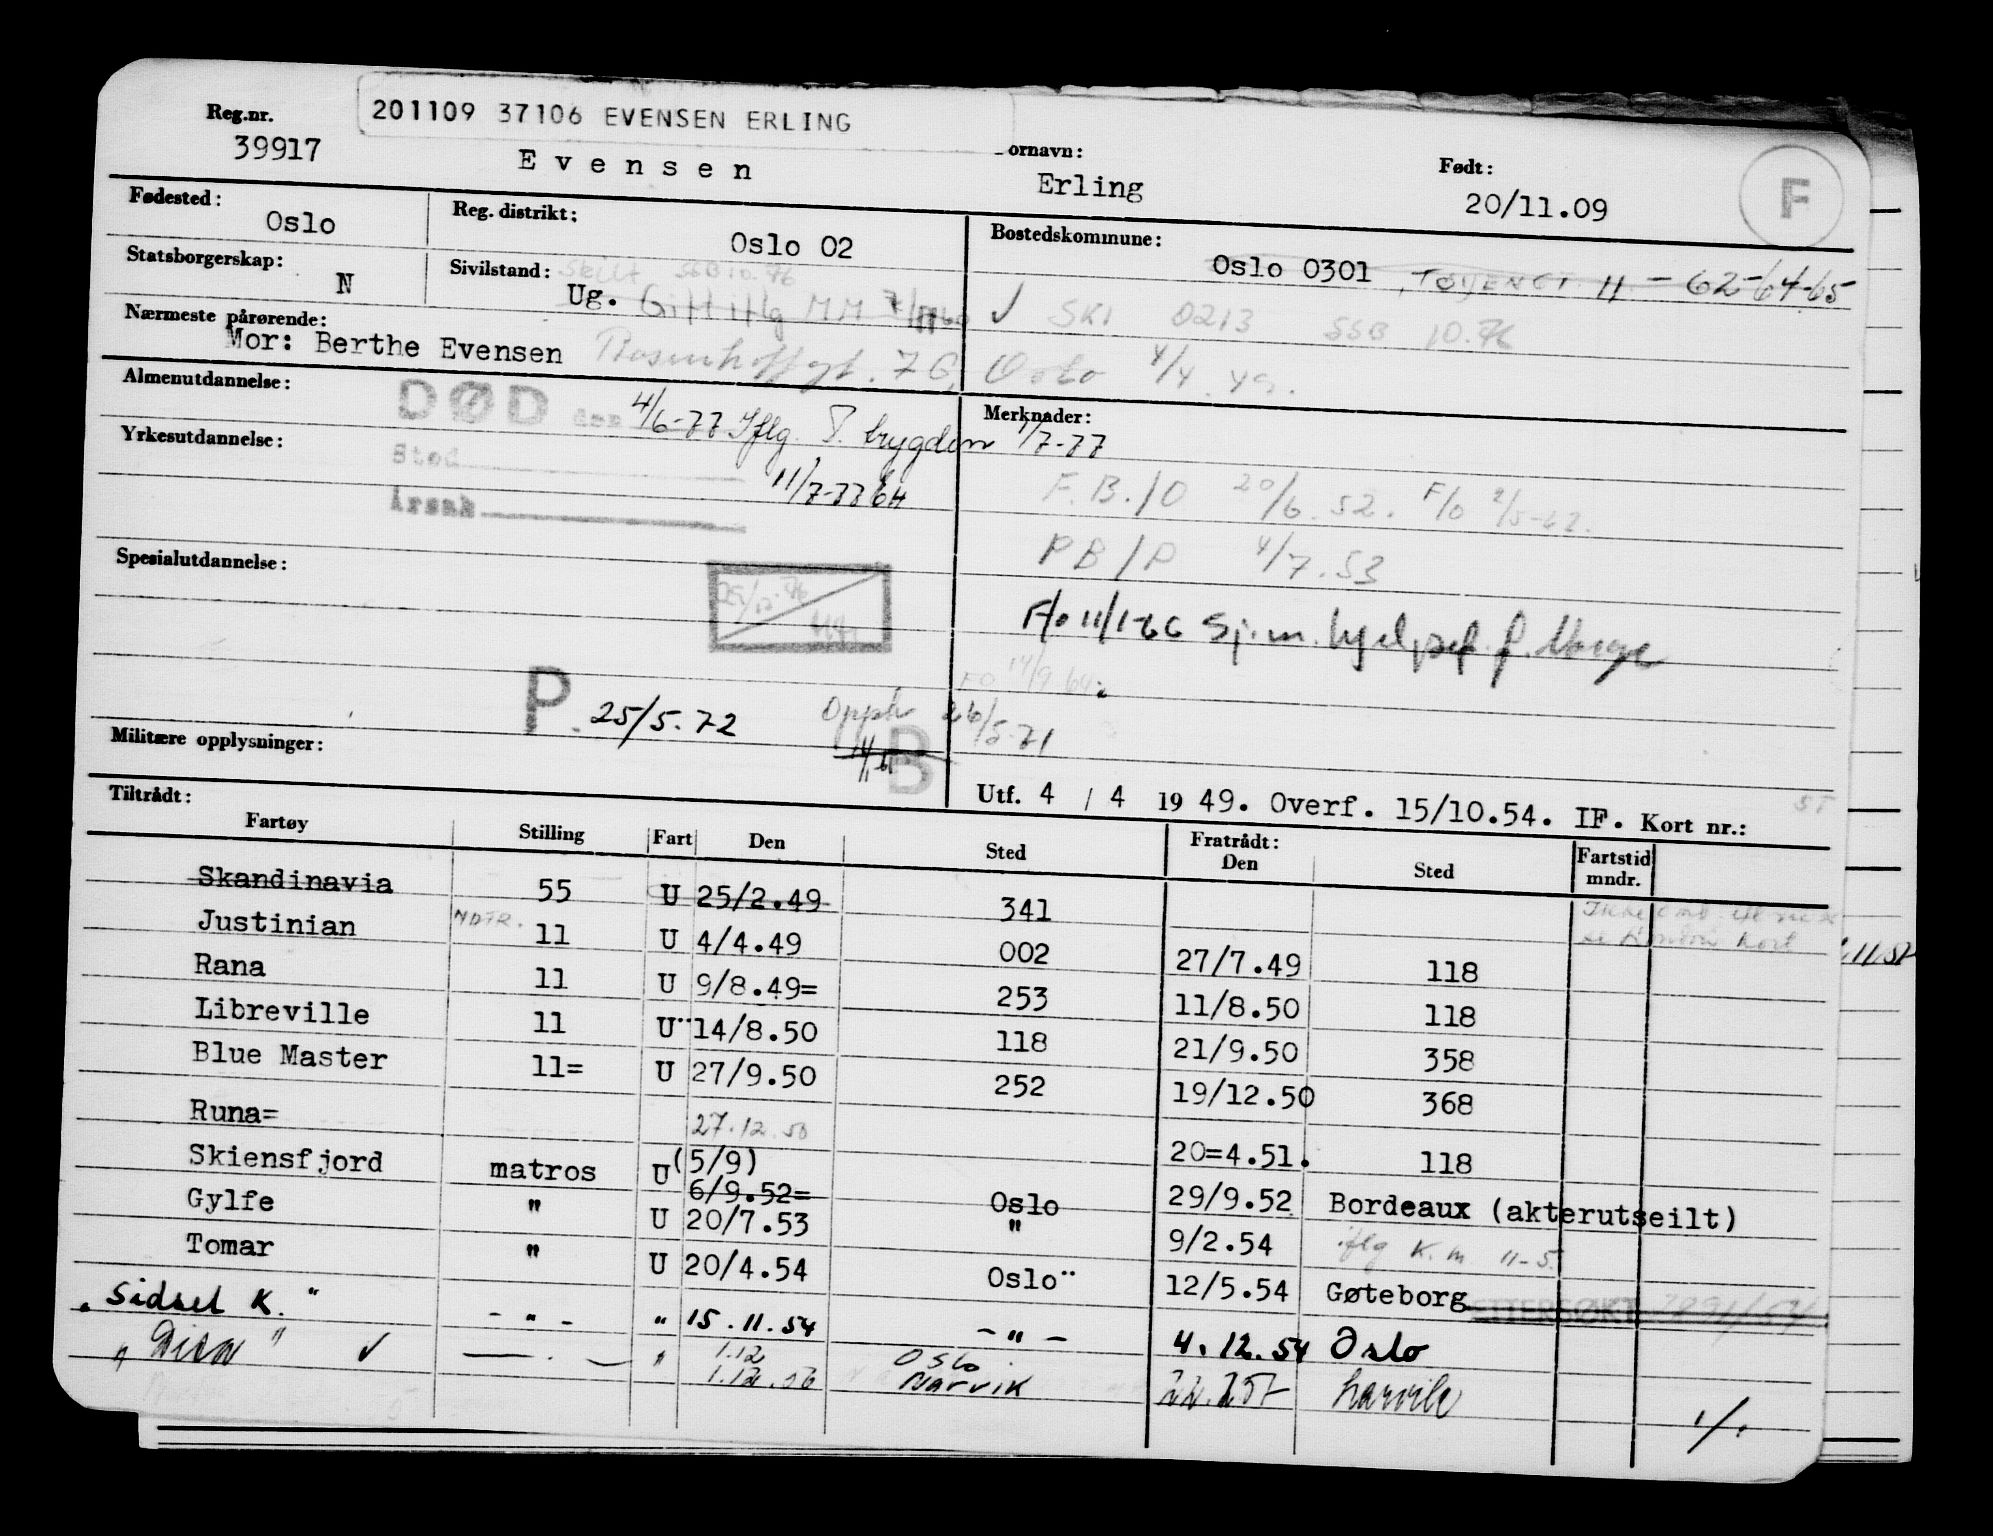 201109 37106 EVENSEN ERLING
Reg.nr. 39917 Evensen ornavn: Erling Født: 20/11.09 F
Fødested: Oslo Reg. distrikt: Oslo 02 Bostedskommune: Oslo 0301 TØYENGT 11 - 62-64-65
Statsborgerskap: N Sivilstand: Ug. Skilt SSB 10.76 Gift iflg MM
✓ SKI 0213 SSB 10.76
Nærmeste pårørende: Mor: Berthe Evensen Rosenhoffgt. 7 C, Oslo 4/4 49.
Almenutdannelse: DØD den 4/6-77 Iflg. T. trygden 1/7-77 Merknader:
Yrkesutdannelse: Sted 11/7-77
Årsak
F.B./O 20/6.52. F/O 2/5-62.
PB/P 4/7.53
Spesialutdannelse:
F/o 11/1-66 Sj.m. hjelpsef. f. Norge
FO 14/9.64
P. 25/5.72 Opph 26/5-71 B
Militære opplysninger:
Utf. 4 / 4 19 49. Overf. 15/10.54. IF. Kort nr.:
Tiltrådt: Fratrådt:
Fartøy Stilling Fart Den Sted Den Sted Fartstid mndr.
Skandinavia 55 U 25/2.49 341
Justinian MOTR. 11 U 4/4.49 002 27/7.49 118
Rana 11 U 9/8.49= 253 11/8.50 118
Libreville 11 U¨ 14/8.50 118 21/9.50 358
Blue Master 11= U 27/9.50 252 19/12.50 368
Runa= 27.12.50 20=4.51. 118
Skiensfjord matros U (5/9) 6/9.52= Oslo 29/9.52 Bordeaux (akterutseilt)
Gylfe " U 20/7.53 " 9/2.54 iflg K.m 11-5.
Tomar " U 20/4.54 Oslo¨ 12/5.54 Gøteborg ETTERSØKT
"Sidsel K." - " - " 15.11.54 - " - 4.12.54 Oslo
"Disa" ✓ — . — " 1.12 Oslo
1.12.56 Narvik Narvik